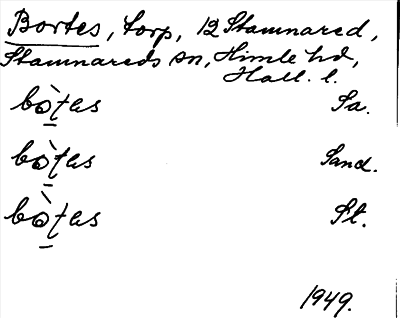 Bortes, torp, 12 Stamnared,
Stamnareds sn, Himle hd,
Hall. l.
bò̠tas Sa.
bò̠tas Sand.
bò̠tas St.
1949.